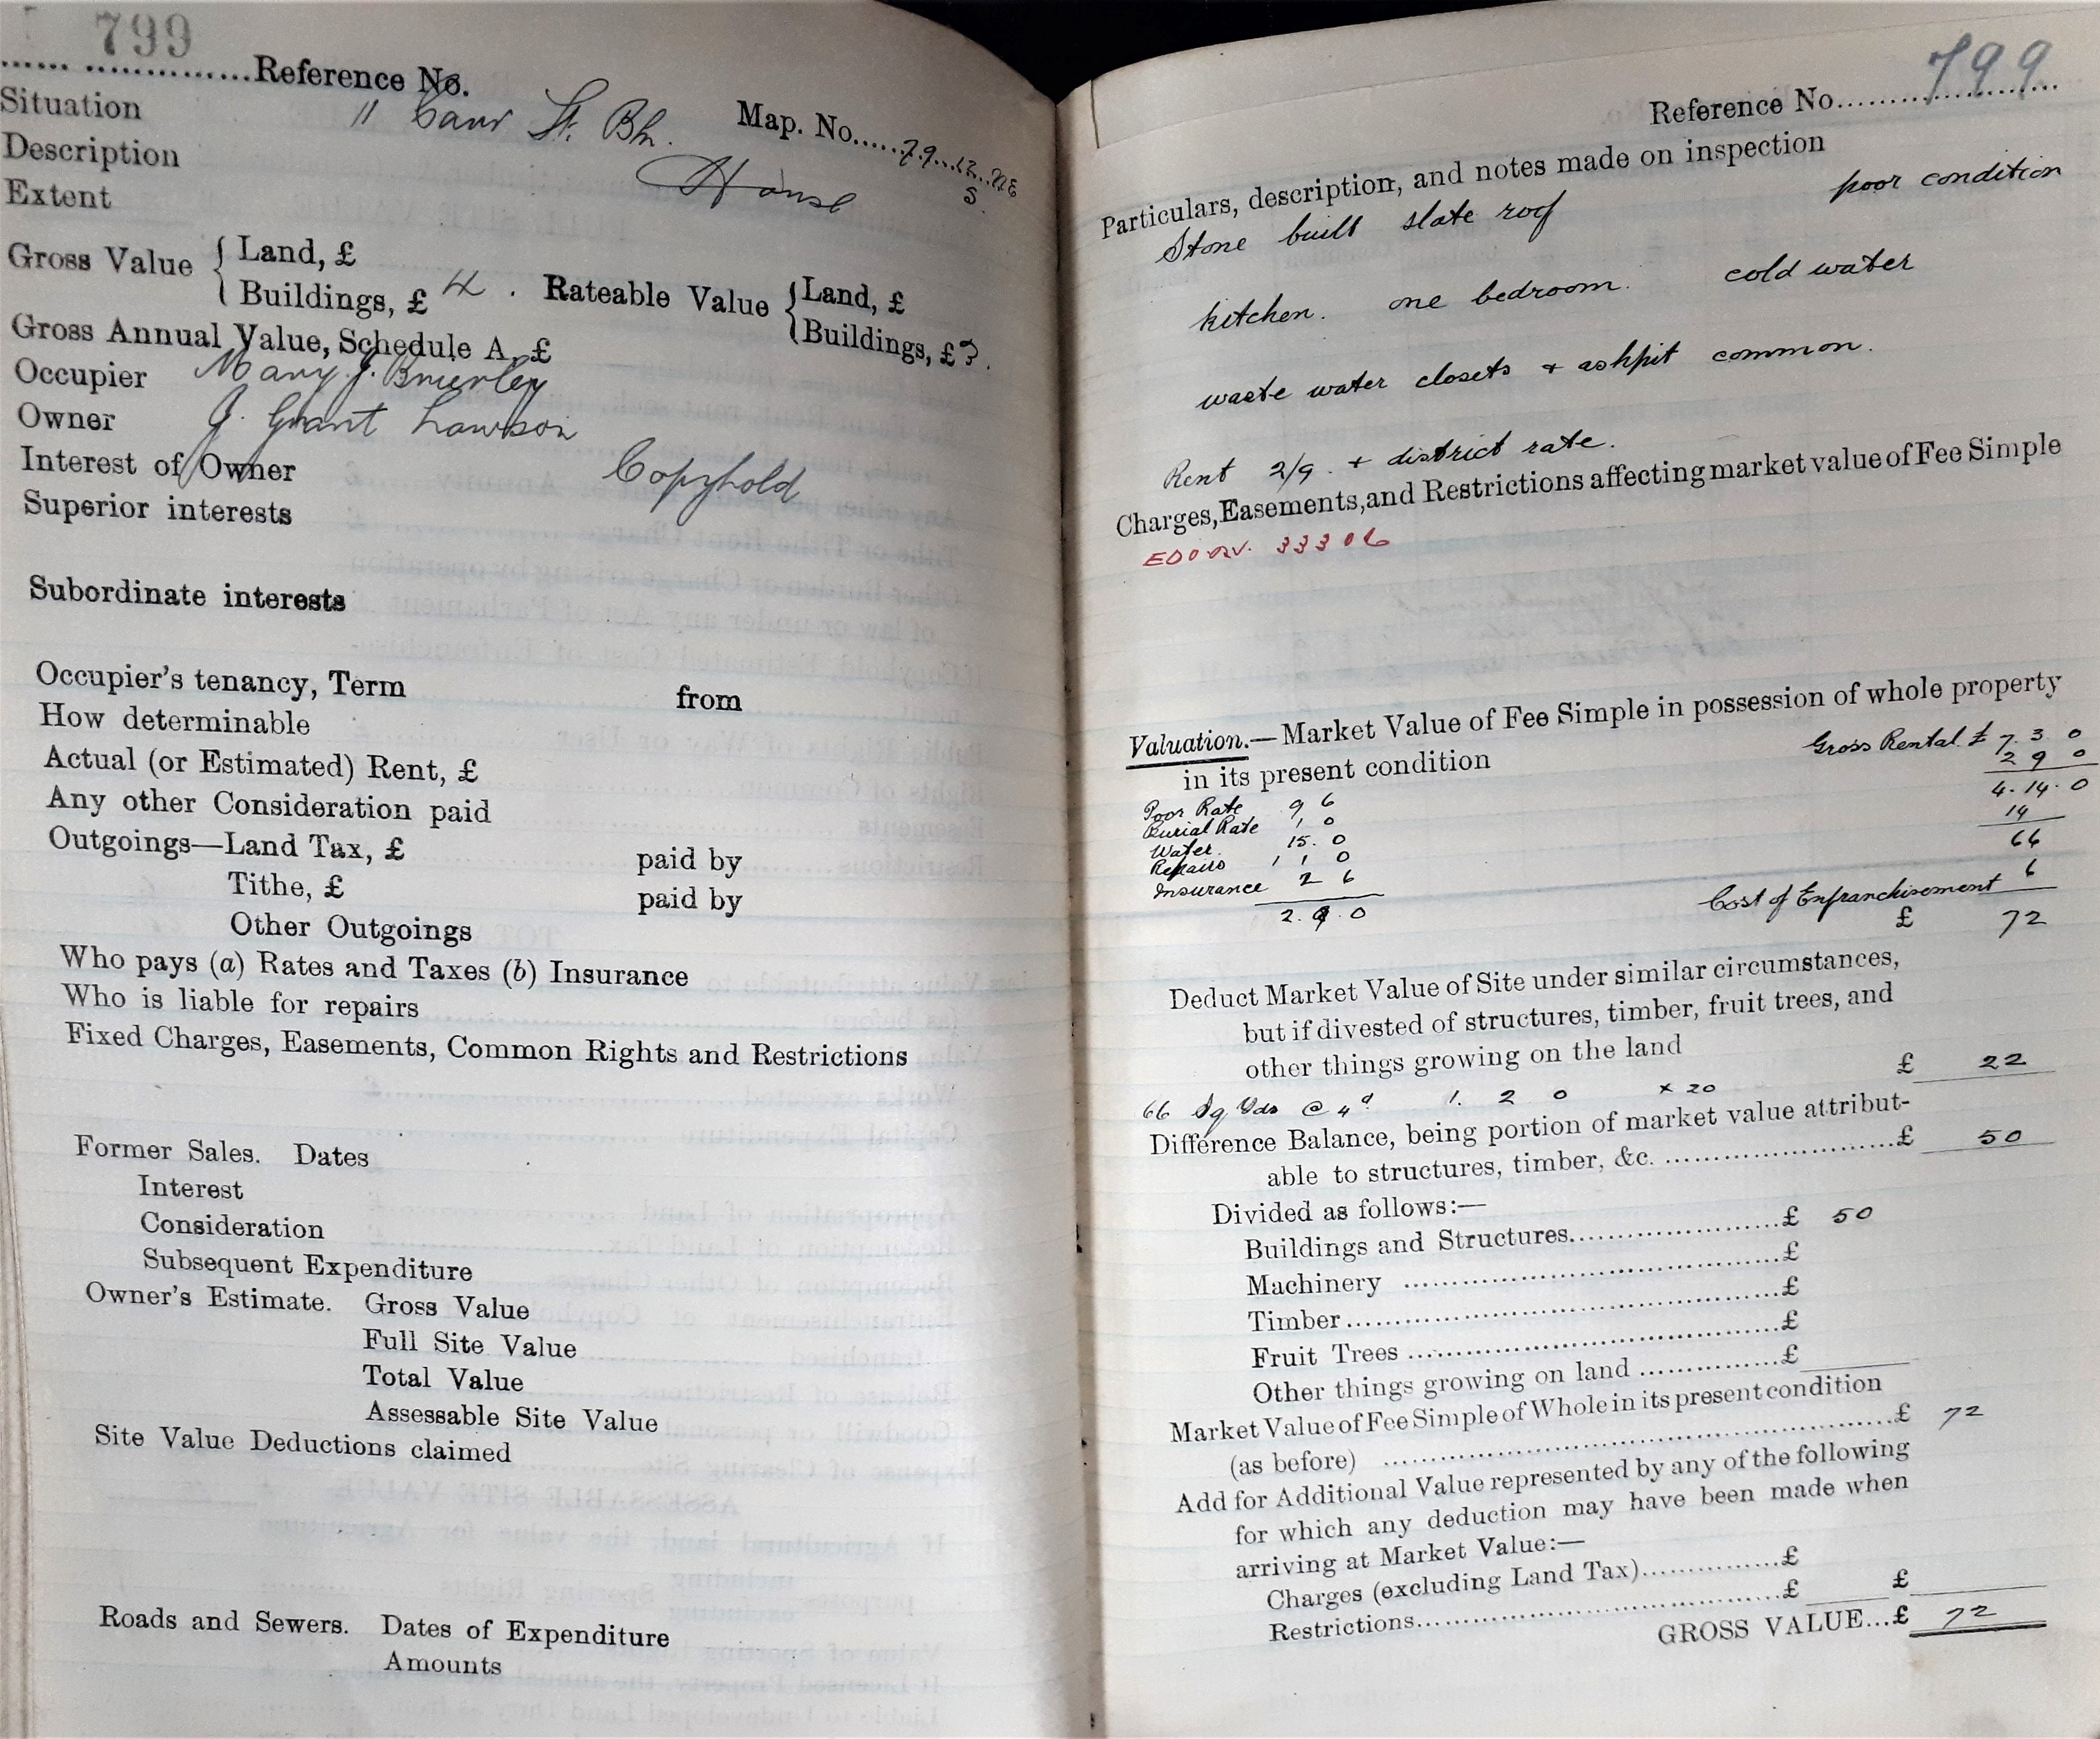 799
Reference No.
Situation 11 St. Bh. Map. No. 79.12.NE
S.
Description House
Extent
Gross Value { Land, £
Buildings, £ 4. Rateable Value { Land, £
Buildings, £ 3.
Gross Annual Value, Schedule A, £
Occupier Mary J. Brierley
Owner J. Grant Lawson
Interest of Owner Copyhold
Superior interests
Subordinate interests
Occupier's tenancy, Term from
How determinable
Actual (or Estimated) Rent, £
Any other Consideration paid
Outgoings—Land Tax, £ paid by
Tithe, £ paid by
Other Outgoings
Who pays (a) Rates and Taxes (b) Insurance
Who is liable for repairs
Fixed Charges, Easements, Common Rights and Restrictions
Former Sales. Dates
Interest
Consideration
Subsequent Expenditure
Owner's Estimate. Gross Value
Full Site Value
Total Value
Assessable Site Value
Site Value Deductions claimed
Roads and Sewers. Dates of Expenditure
Amounts
Reference No. 799
Particulars, description, and notes made on inspection
Stone built slate roof poor condition
kitchen. one bedroom. cold water
waste water closets + ashpit common.
Rent 2/9. + district rate.
Charges, Easements, and Restrictions affecting market value of Fee Simple
33306
Valuation.—Market Value of Fee Simple in possession of whole property
in its present condition Gross Rental £ 7. 3. 0
2 9 0
Poor Rate 9 6 4. 14. 0
Burial Rate 1. 0 14
Water. 15. 0 66
Repairs 1 1 0
Insurance 2 6 Cost of Enfranchisement 6
2. 9. 0 £ 72
Deduct Market Value of Site under similar circumstances,
but if divested of structures, timber, fruit trees, and
other things growing on the land £ 22
66 Sq Yds @ 4d 1. 2 0 x 20
Difference Balance, being portion of market value attribut-
able to structures, timber, &c. £ 50
Divided as follows:—
Buildings and Structures £ 50
Machinery £
Timber £
Fruit Trees £
Other things growing on land £
Market Value of Fee Simple of Whole in its present condition
(as before) £ 72
Add for Additional Value represented by any of the following
for which any deduction may have been made when
arriving at Market Value:—
Charges (excluding Land Tax) £
Restrictions £ £
GROSS VALUE...£ 72